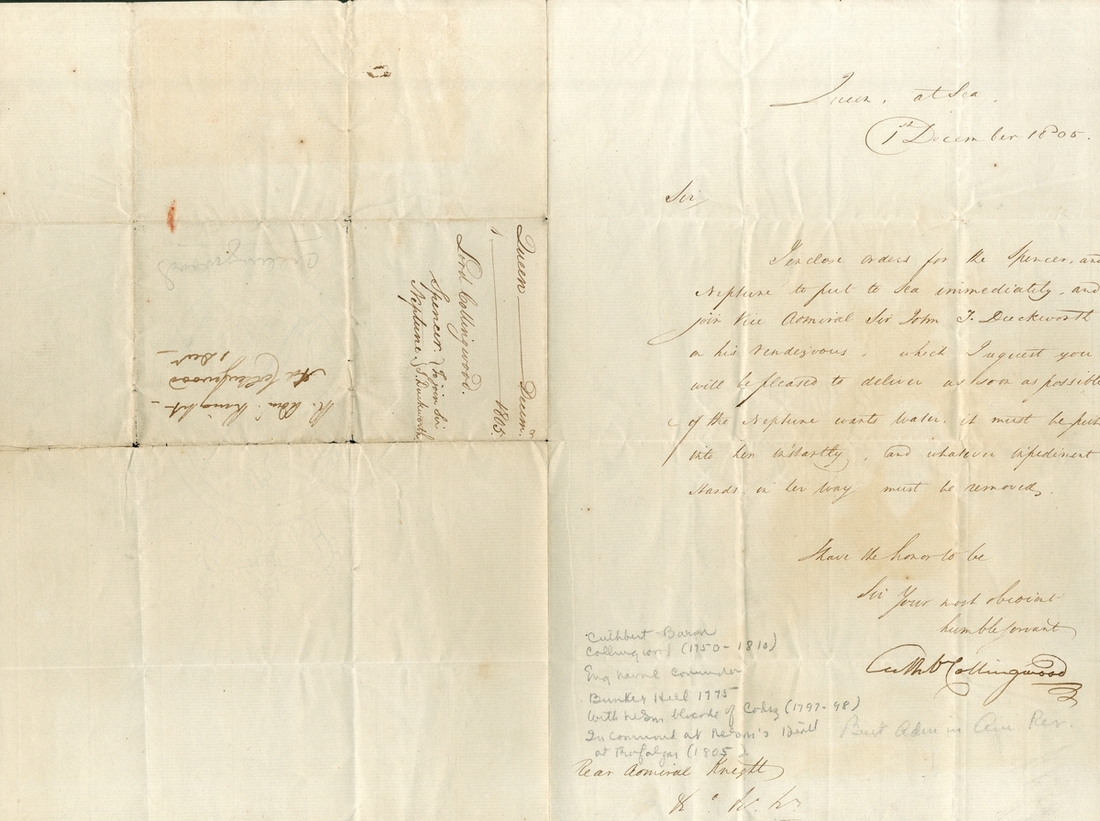 Queen, at Sea,
1st December 1805.
Sir
I enclose orders for the Spencer, and
Neptune to put to sea immediately, and
join Vice Admiral Sir John T. Duckworth
on his Rendezvous, which I request you
will be pleased to deliver as soon as possible
if the Neptune wants water, it must be put
into her instantly, and whatever impediment
stands in her way must be removed,
I have the honor to be
Sir Your most obedient
humble servant
Cuthbt Collingwood
Cuthbert Baron
Collingwood (1750-1810)
Eng naval commander
Bunker Hill 1775
With Nelson blocade of Cadiz (1797-98)
In command at Nelson's Death
at Trafalgar (1805)
Brit Adm in Am Rev.
Rear Admiral Knight
&c &c &c
Queen Decemr
1 1805
Lord Collingwood.
Spencer & to join Sir
Neptune J. Duckworth
R. Adm. Knight
Ld Collingwood
1 Decr
Collingwood